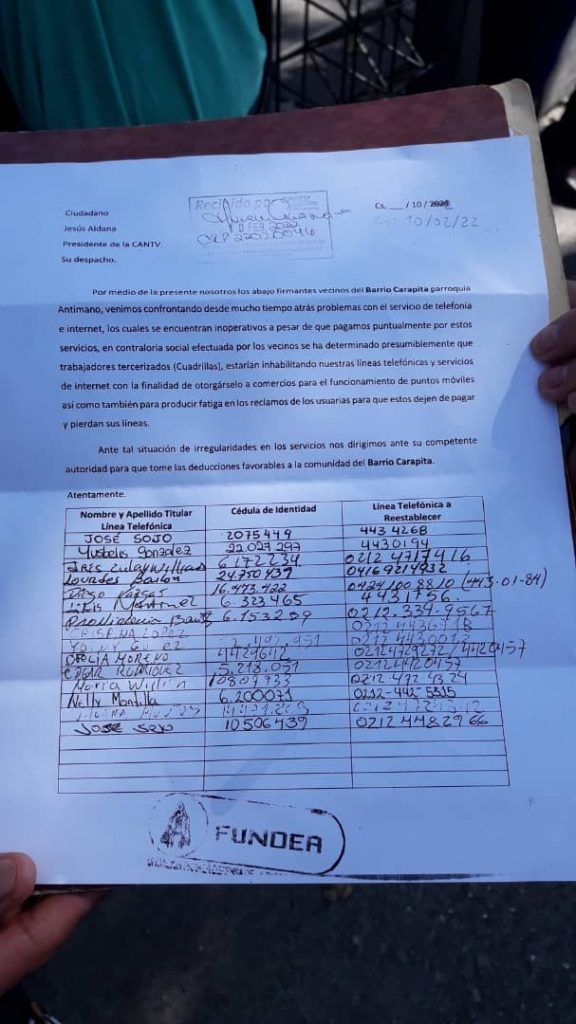 Ciudadano
Jesús Aldana
Presidente de la CANTV.
Su despacho.
Recibido por
FEB. 2022
Cs, ___ / 10 / 2020
Cs: 10/02/22
Por medio de la presente nosotros los abajo firmantes vecinos del Barrio Carapita parroquia
Antimano, venimos confrontando desde mucho tiempo atrás problemas con el servicio de telefonía
e internet, los cuales se encuentran inoperativos a pesar de que pagamos puntualmente por estos
servicios, en contraloría social efectuada por los vecinos se ha determinado presumiblemente que
trabajadores tercerizados (Cuadrillas), estarían inhabilitando nuestras líneas telefónicas y servicios
de internet con la finalidad de otorgárselo a comercios para el funcionamiento de puntos móviles
así como también para producir fatiga en los reclamos de los usuarias para que estos dejen de pagar
y pierdan sus líneas.
Ante tal situación de irregularidades en los servicios nos dirigimos ante su competente
autoridad para que tome las deducciones favorables a la comunidad del Barrio Carapita.
Atentamente.
Nombre y Apellido Titular Línea Telefónica Cédula de Identidad Línea Telefónica a Reestablecer
JOSÉ SOJO 2075449 443 4268
Yusbelis Gonzalez 22.027.297 4430194
6172234 0212 4717416
Lourdes 24.750.437 04169214932
Diego Vargas 16.473.422 0424 100 88 10 (443-01-84)
Martinez 6.323465 4431756
6.153209 0212.334.9567
CRISPINA LOPEZ
OFELIA MORENO 4424642 02124729272 / 4420457
EDGAR RODRIGUEZ 5.218.051 02124420457
Maria 0212.472 4324
Nelly Montilla 6,200071 0212-442 5315
JOSE SOJO 10506439 0212 4482966
FUNDEA